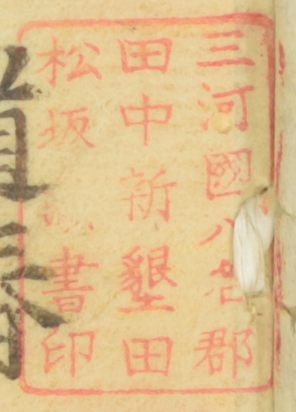 三河國八名郡
田中新墾田
松坂 書印